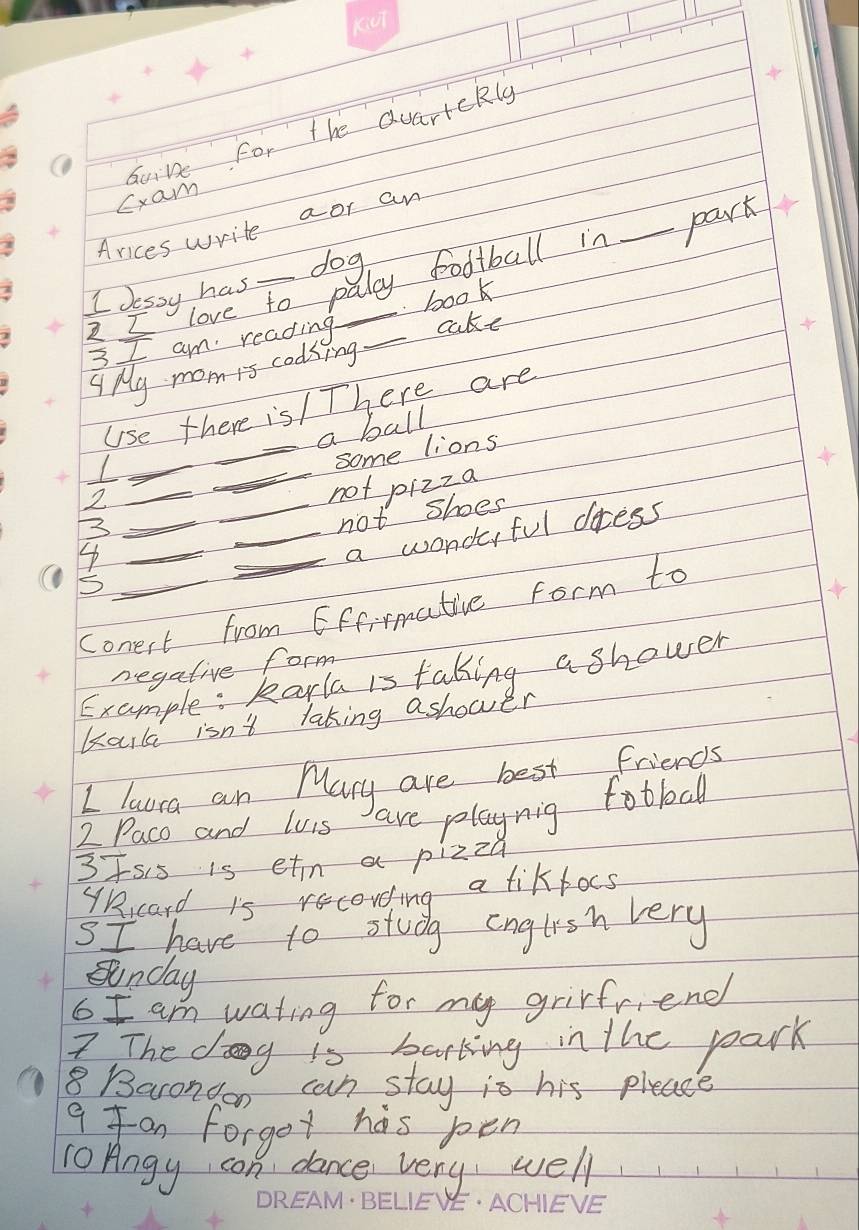 KIUT
Guide for the Quarterly
Exam
Arices write a or an
1 Jessy has __ dog
2 I love to paley football in __ park
3 I am reading __ book
4 My mom is cooking __ cake
Use there is/There are
1 __ __ a ball
2 __ __ some lions
3 __ __ not pizza
4 __ __ not shoes
5 __ __ a wonderful dress
Conert from Effirmative form to
negative form
Example: Karla is taking a shower
Karla isn't taking ashower
1 laura an Mary are best friends
2 Paco and luis are playnig fotball
3 Isis is etin a pizza
4 Ricard is recording a tiktocs
5 I have to study english very
Sunday
6 I am wating for my grirfriend
7 The dog is barking in the park
8 can stay is his pleace
9 Ian forgot his pen
10 Angy can dance very well
DREAM·BELIEVE·ACHIEVE